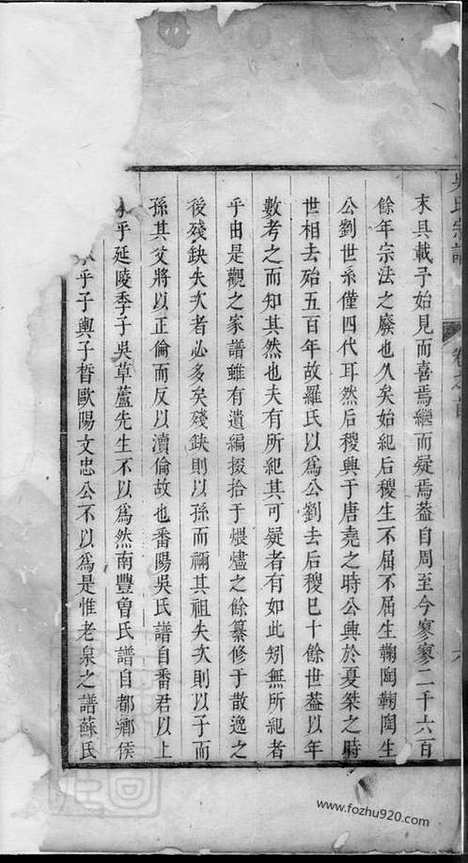 吳氏宗譜 卷之首 六
末具載予始見而喜焉繼而疑焉葢自周至今寥寥二千六百
餘年宗法之廢也久矣始紀后稷生不屈不屈生鞠陶鞠陶生
公劉世系僅四代耳然后稷興于唐堯之時公興於夏桀之時
世相去殆五百年故羅氏以爲公劉去后稷已十餘世葢以年
數考之而知其然也夫有所紀其可疑者有如此矧無所紀者
乎由是觀之家譜雖有遺編掇拾于煨燼之餘纂修于散逸之
後殘缺失次者必多矣殘缺則以孫而禰其祖失次則以子而
孫其父將以正倫而反以瀆倫故也番陽吳氏譜自番君以上
乎延陵季子吳草蘆先生不以爲然南豐曾氏譜自都鄉侯
乎子輿子晳歐陽文忠公不以爲是惟老泉之譜蘇氏
www.fozhu920.com